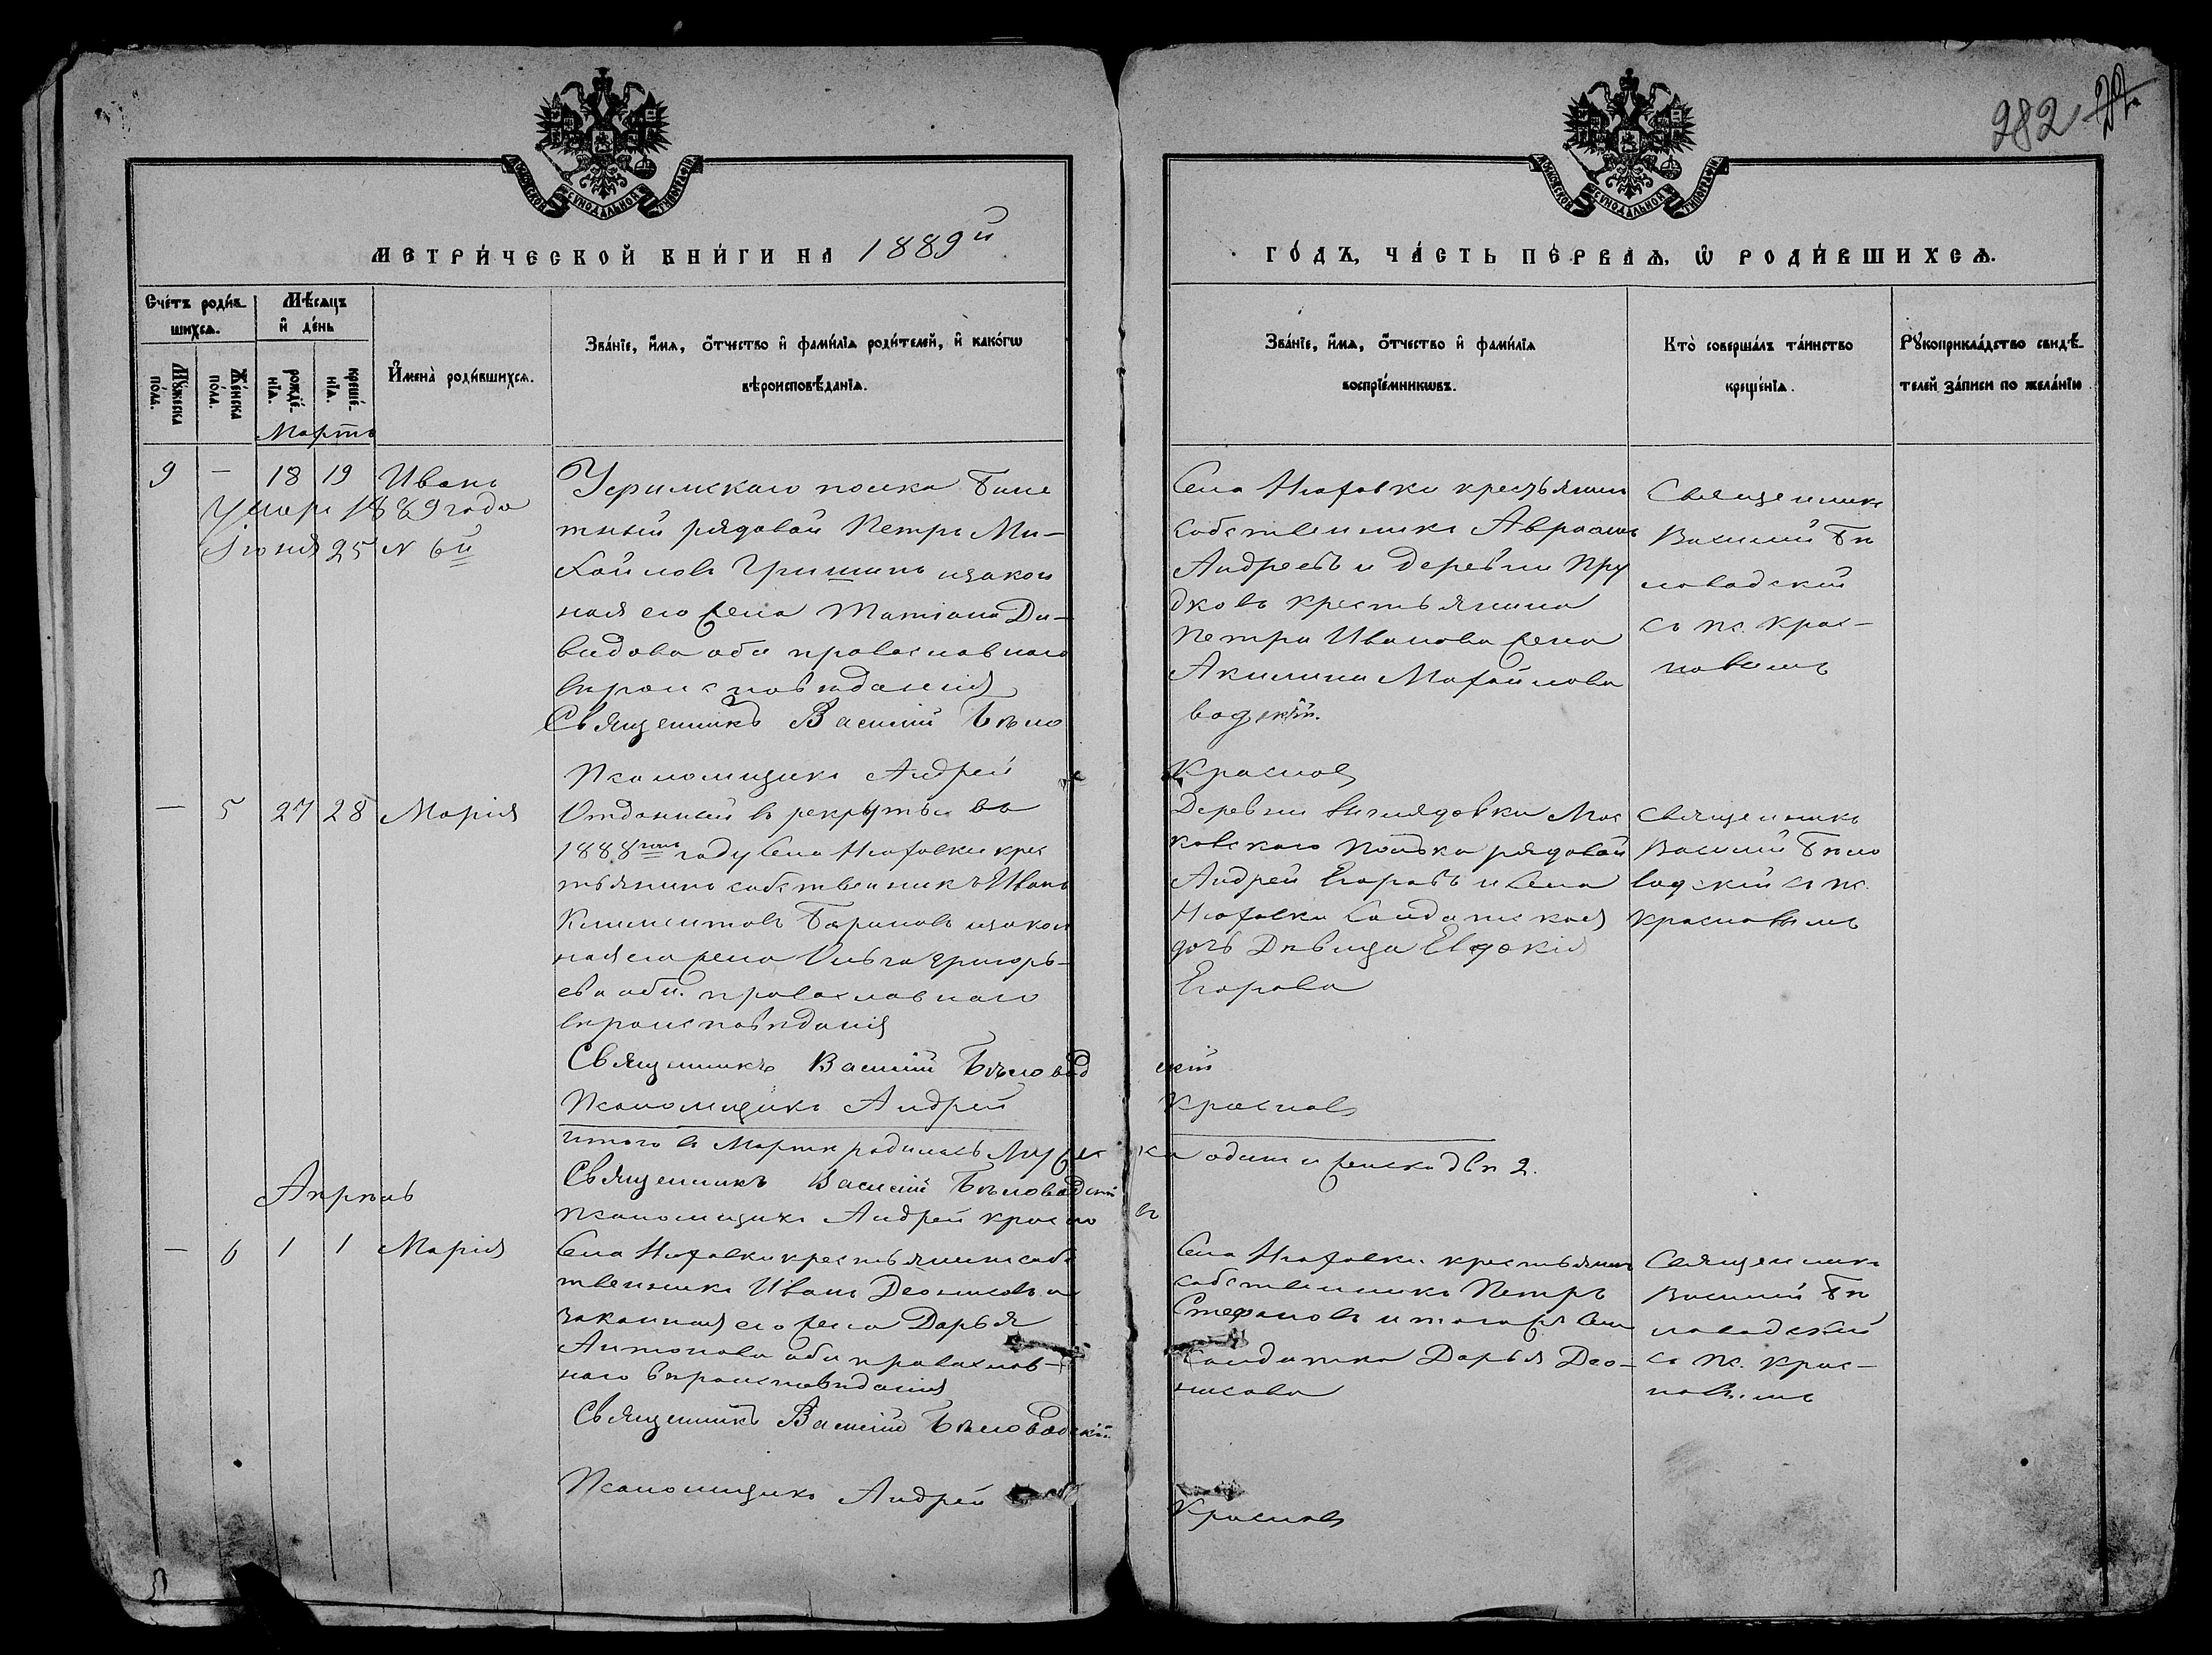 282
МОСКОВСКОЙ СѴНОДАЛЬНОЙ ТИПОГРАФІИ
МОСКОВСКОЙ СѴНОДАЛЬНОЙ ТИПОГРАФІИ
МЕТРИ́ЧЕСКОЙ КНИ́ГИ НА 1889й
ГО́ДЪ, ЧА́СТЬ ПЕ́РВАѦ, Ѡ РОДИ́ВШИХСѦ.
Сче́тъ роди́в-
шихсѧ.
Мѣ́сѧцъ
и҆ де́нь
Мꙋ́жеска
по́ла.
Же́нска
по́ла.
рожде́-
нїѧ.
креще́-
нїѧ.
И҆мена̀ роди́вшихсѧ.
Зва́нїе, и҆́мѧ, ѻ҆́тчество и҆ фами́лїѧ роди́телей, и҆ како́гѡ
вѣроисповѣ́данїѧ.
Зва́нїе, и҆́мѧ, ѻ҆́тчество и҆ фами́лїѧ
воспрїе́мникѡвъ.
Кто̀ соверша́лъ та́инство
креще́нїѧ.
Рꙋкоприкла́дство свидѣ́-
телей за́писи по жела́нїю
Мартъ
9 — 18 19 Иванъ
Умеръ 1889 года
Іюня 25 N 6й
полка Биле
тный рядовой Петръ Ми-
хайловъ Гришинъ изакон
ная его жена Татіана Да-
видова оба православнаго
вѣроисповѣданія
Священникъ Василій Бѣло
водскій.
Псаломщикъ Андрей
Красновъ
Села крестьянинъ
собственникъ Авраамъ
Андреевъ и деревни Пру
дковъ крестьянина
Петра Иванова жена
Акилина Михайлова
Священникъ
Василій Бѣ
ловодскій
съ пс. Крас-
новымъ
— 5 27 28 Марія
Отданный въ рекруты въ
1888мъ году Села крес
тьянинъ собственникъ Иванъ
Климентовъ Бариновъ изакон
ная его жена Ольга Григорь-
ева оба православнаго
вѣроисповѣданія
Священникъ Василій Бѣловод
скій
Псаломщикъ Андрей
Красновъ
Деревни Мос
ковскаго полка рядовой
Андрей Егоровъ и Села
Солдатская
дочь Дѣвица Евдокія
Егорова
Священникъ
Василій Бѣло
водскій съ пс.
Красновымъ
Итого въ Мартѣ родилось Мужес
ка одинъ и женска два 2.
Священникъ Василій Бѣловодскій
Псаломщикъ Андрей Красно
въ
Апрѣль
— 6 1 1 Марія
Села крестьянинъ собс
твенникъ Иванъ Деонисовъ и
законная его жена Дарья
Антонова оба православ-
наго вѣроисповѣданія
Священникъ Василій Бѣловодскій
Псаломщикъ Андрей
Красновъ
Села крестьянинъ
собственникъ Петръ
Стефановъ и тогожъ Села
Солдатка Дарья Део-
нисова
Священникъ
Василій Бѣ
ловодскій
съ пс. Крас-
новымъ